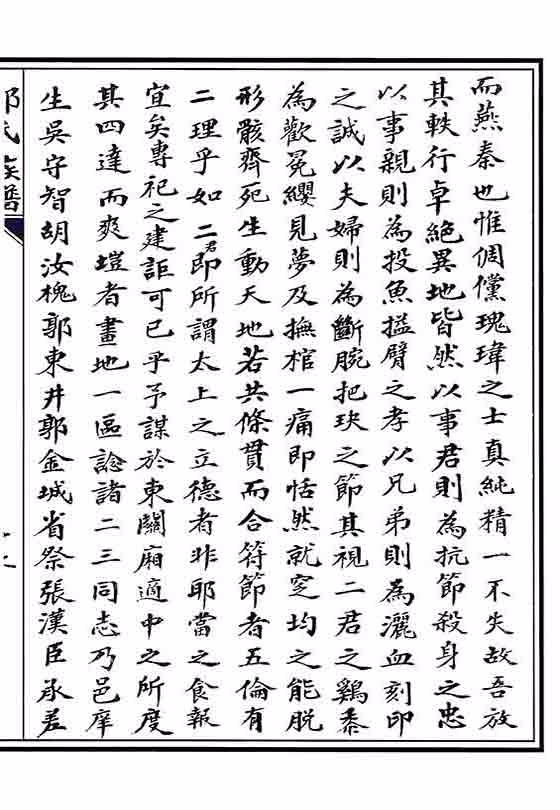 而燕秦也惟倜儻瑰瑋之士真純精一不失故吾放
其軼行卓絕異地皆然以事君則為抗節殺身之忠
以事親則為投魚搤臂之孝以兄弟則為灑血刻印
之誠以夫婦則為斷腕把玦之節其視二君之鷄黍
為歡冕纓見夢及撫棺一痛即恬然就窆均之能脫
形骸齊死生動天地若共條貫而合符節者五倫有
二理乎如二君即所謂太上之立德者非耶當之食報
宜矣專祀之建詎可已乎予謀於東關廂適中之所度
其四達而爽塏者畫地一區諗諸二三同志乃邑庠
生吳守智胡汝槐郭東井郭金城省祭張漢臣承差
氏族譜